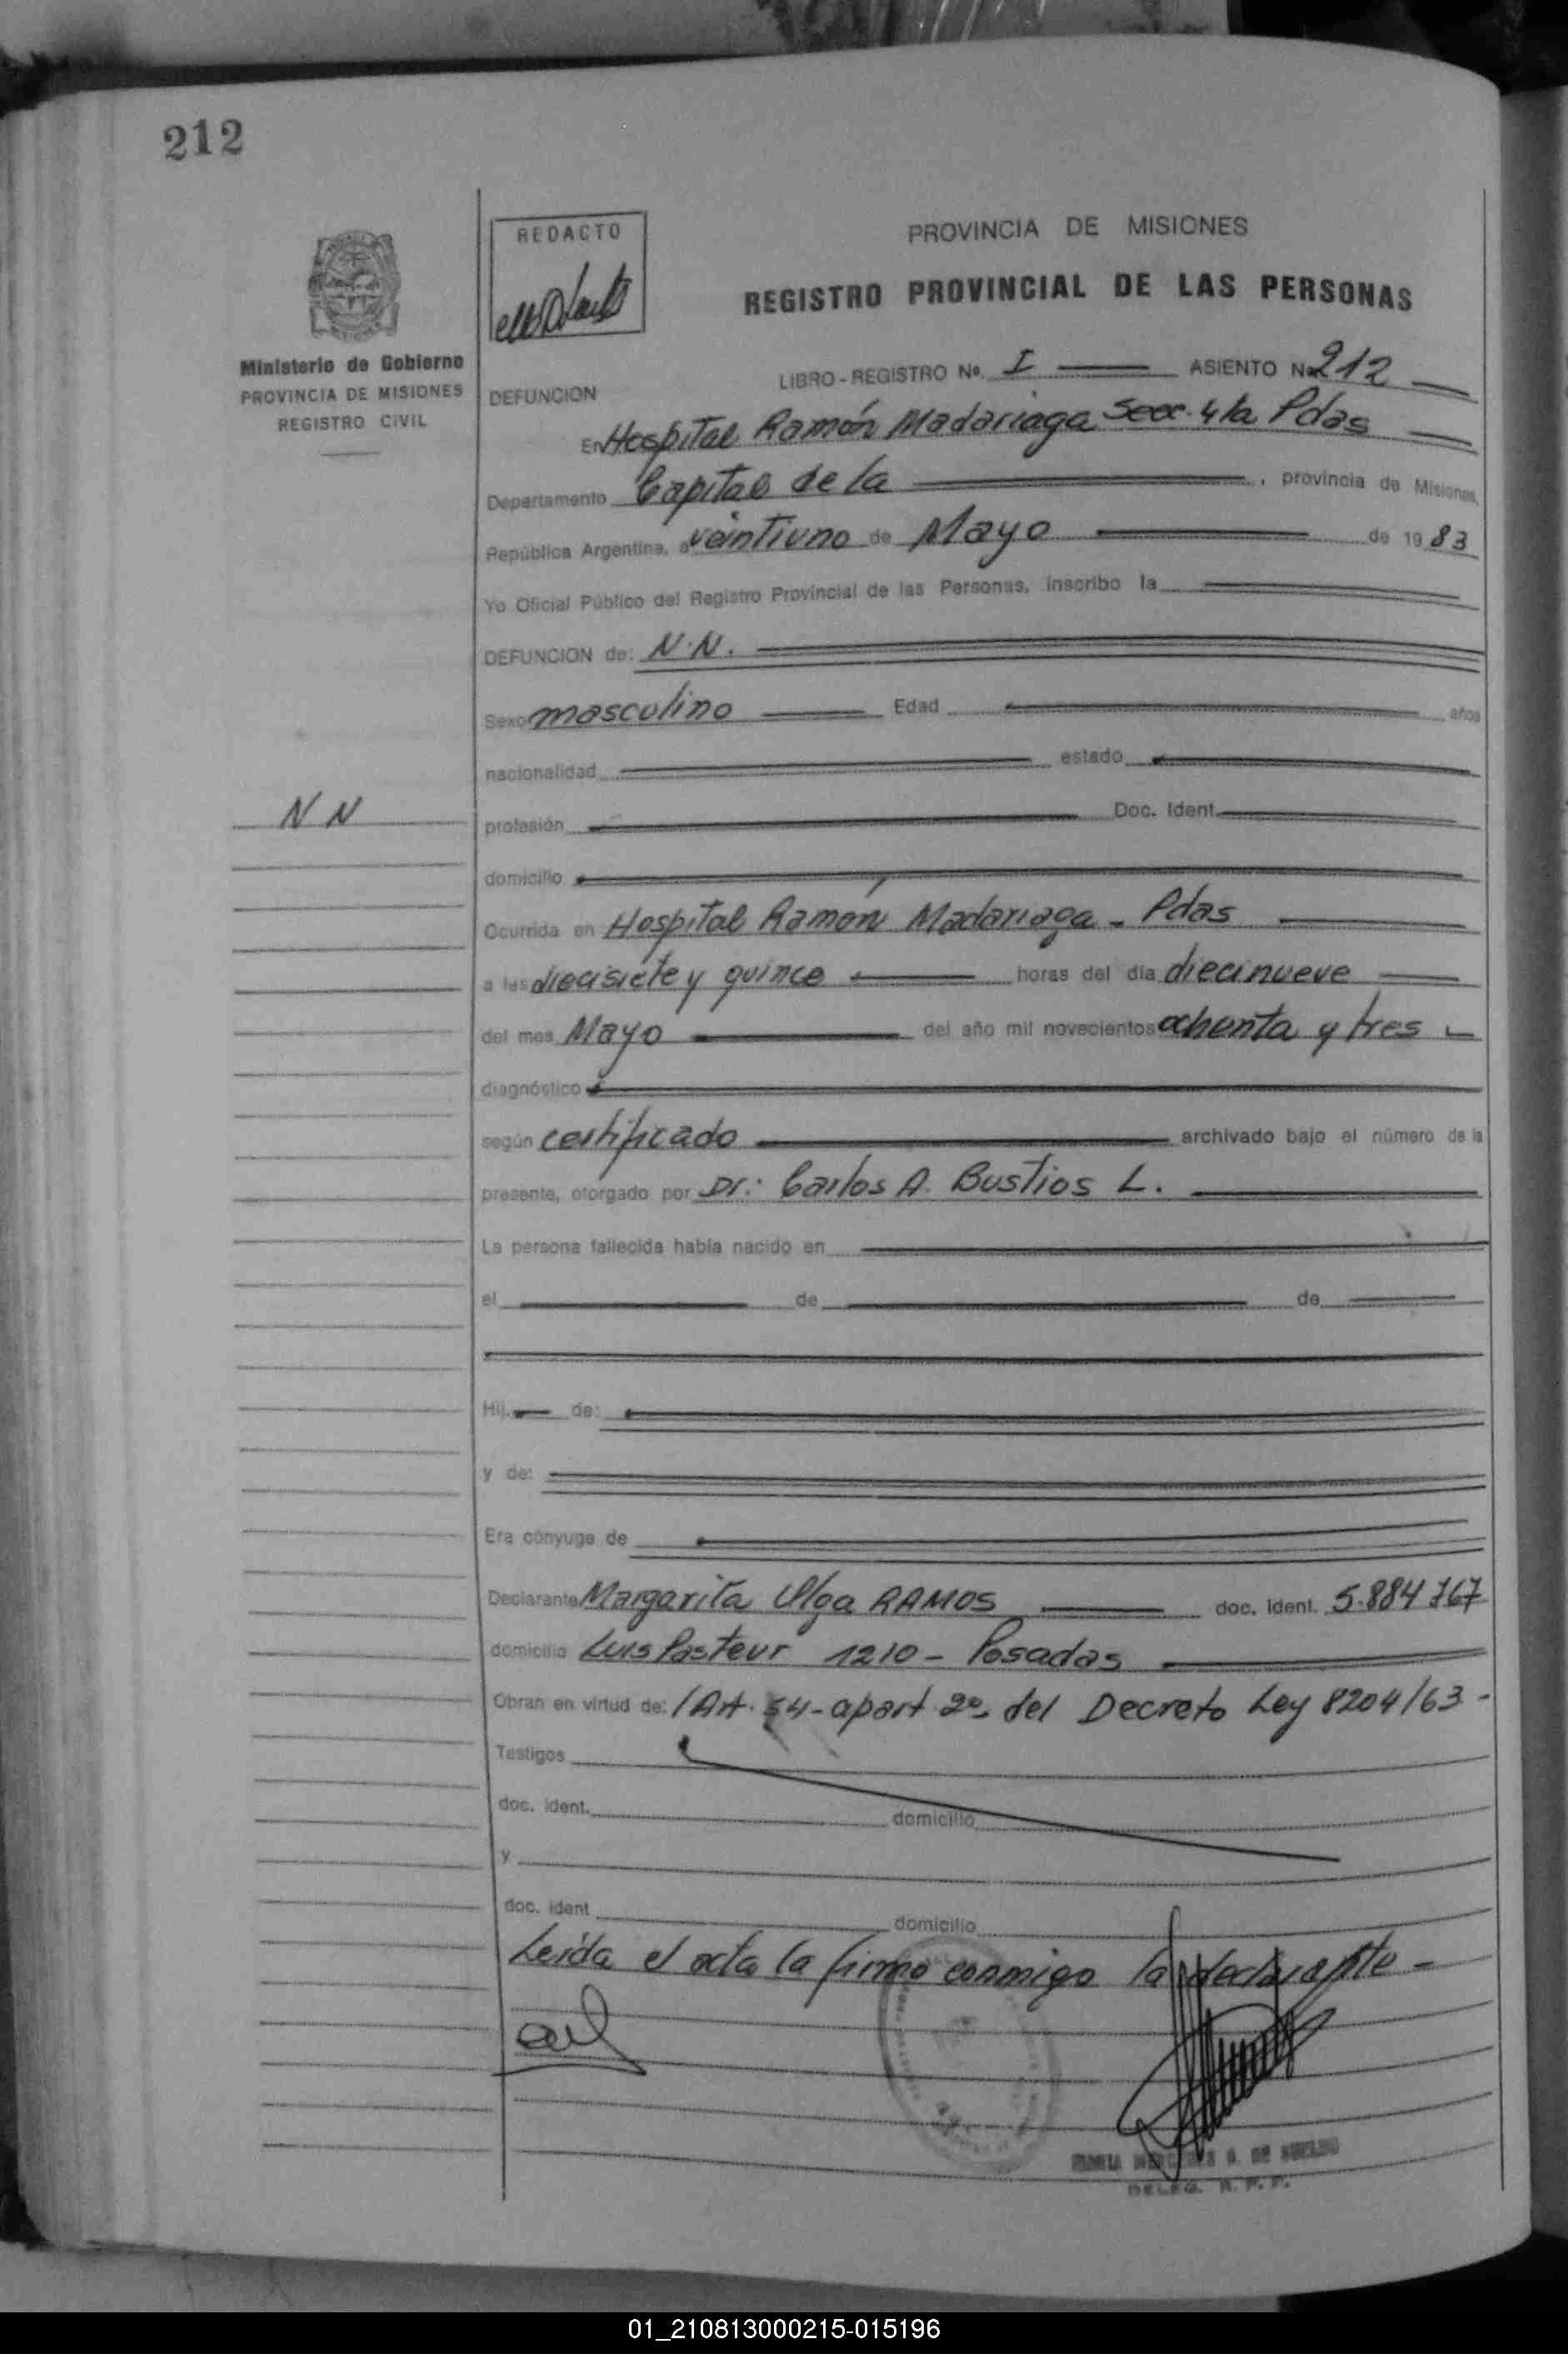 212
REDACTO
PROVINCIA DE MISIONES
REGISTRO PROVINCIAL DE LAS PERSONAS
Ministerio de Gobierno
PROVINCIA DE MISIONES
REGISTRO CIVIL
LIBRO-REGISTRO No. I ASIENTO No 212
DEFUNCION
En Hospital Ramón Madariaga Secc. 4ta Pdas
Departamento Capital de la , provincia de Misiones,
República Argentina, a veintiuno de Mayo de 1983
Yo Oficial Público del Registro Provincial de las Personas, inscribo la
DEFUNCION de: N.N.
Sexo masculino Edad años
nacionalidad estado
N N
profesión Doc. Ident.
domicilio
Ocurrida en Hospital Ramón Madariaga - Pdas
a las diecisiete y quince horas del día diecinueve
del mes Mayo del año mil novecientos ochenta y tres
diagnóstico
según certificado archivado bajo el número de la
presente, otorgado por Dr.: Carlos A. Bustios L.
La persona fallecida había nacido en
el de de
Hij de:
y de:
Era cónyuge de
Declarante Margarita Olga RAMOS doc. ident. 5.884 767
domicilio Luis Pasteur 1210 - Posadas
Obran en virtud de: /Art. 54 - apart 2º del Decreto Ley 8204/63 -
Testigos
doc. ident. domicilio
y
doc. ident domicilio
Leída el acta la firma conmigo la declarante -
DELEG. R. P. P.
01_210813000215-015196